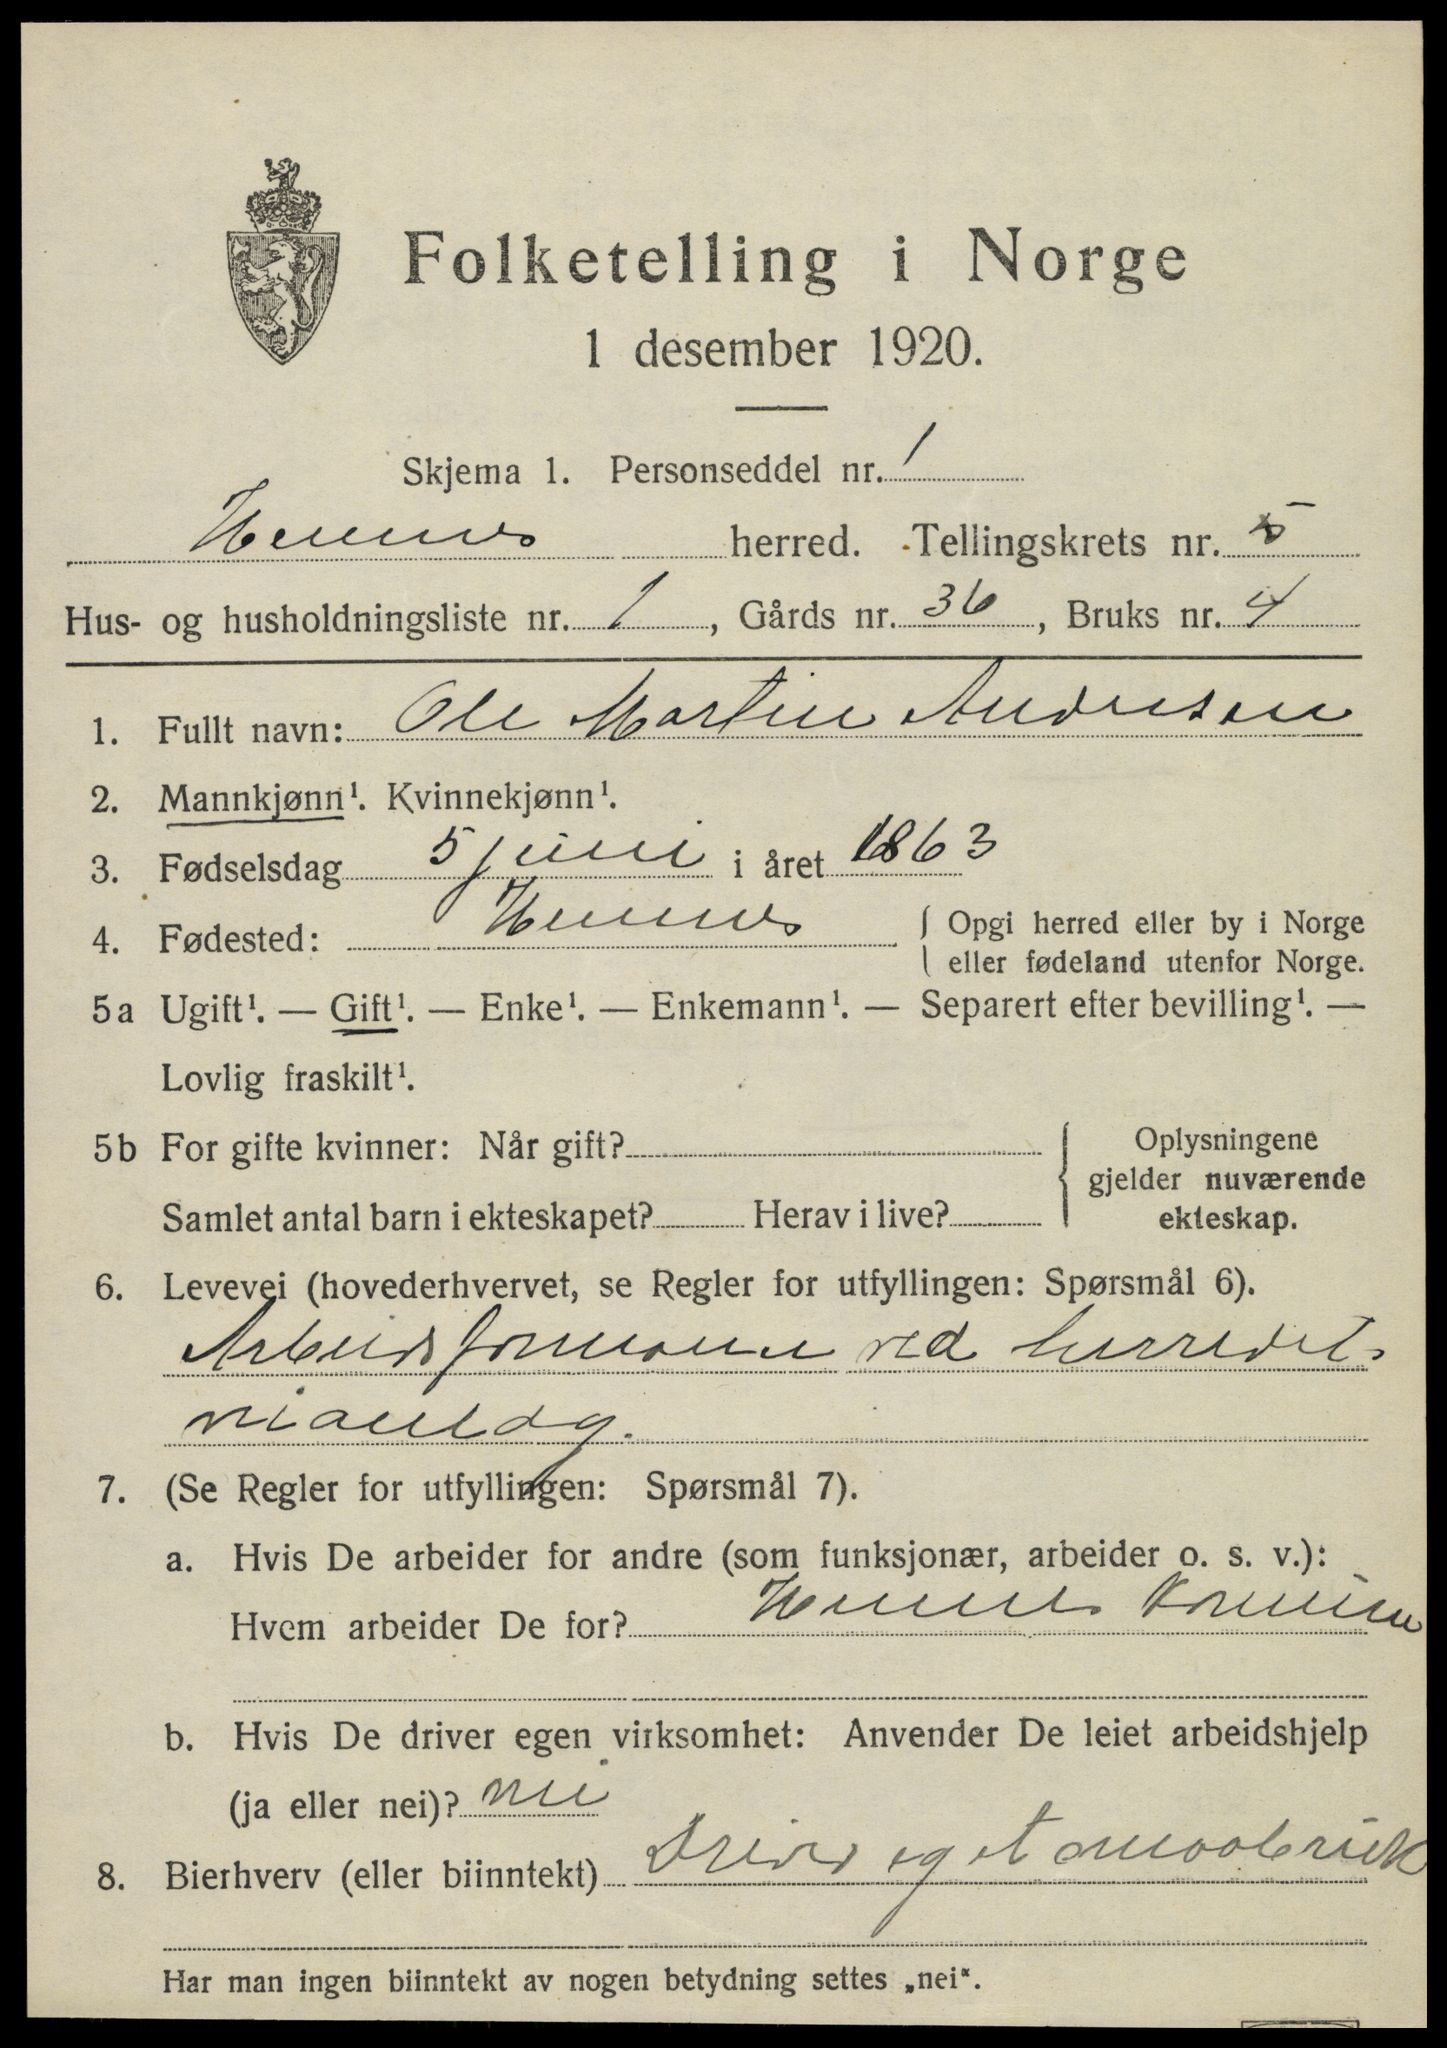 Folketelling i Norge
1 desember 1920.
Skjema 1. Personseddel nr. 1
Hemnes herred. Tellingskrets nr. 5
Hus- og husholdningsliste nr. 1, Gårds nr. 36, Bruks nr. 4
1. Fullt navn: Ole Martin Andersen
2. Mannkjønn¹. Kvinnekjønn¹.
3. Fødselsdag 5 juni i året 1863
4. Fødested: Hemnes { Opgi herred eller by i Norge
eller fødeland utenfor Norge.
5a Ugift¹. — Gift¹. — Enke¹. — Enkemann¹. — Separert efter bevilling¹. —
Lovlig fraskilt¹.
5b For gifte kvinner: Når gift? { Oplysningene
gjelder nuværende
Samlet antal barn i ekteskapet? Herav i live? ekteskap.
6. Levevei (hovederhvervet, se Regler for utfyllingen: Spørsmål 6).
Arbeidsformann ved herredets
veianlæg.
7. (Se Regler for utfyllingen: Spørsmål 7).
a. Hvis De arbeider for andre (som funksjonær, arbeider o. s. v.):
Hvem arbeider De for? Hemnes Kommune
b. Hvis De driver egen virksomhet: Anvender De leiet arbeidshjelp
(ja eller nei)? nei
8. Bierhverv (eller biinntekt) Driver eget smaabruk
Har man ingen biinntekt av nogen betydning settes „nei“.